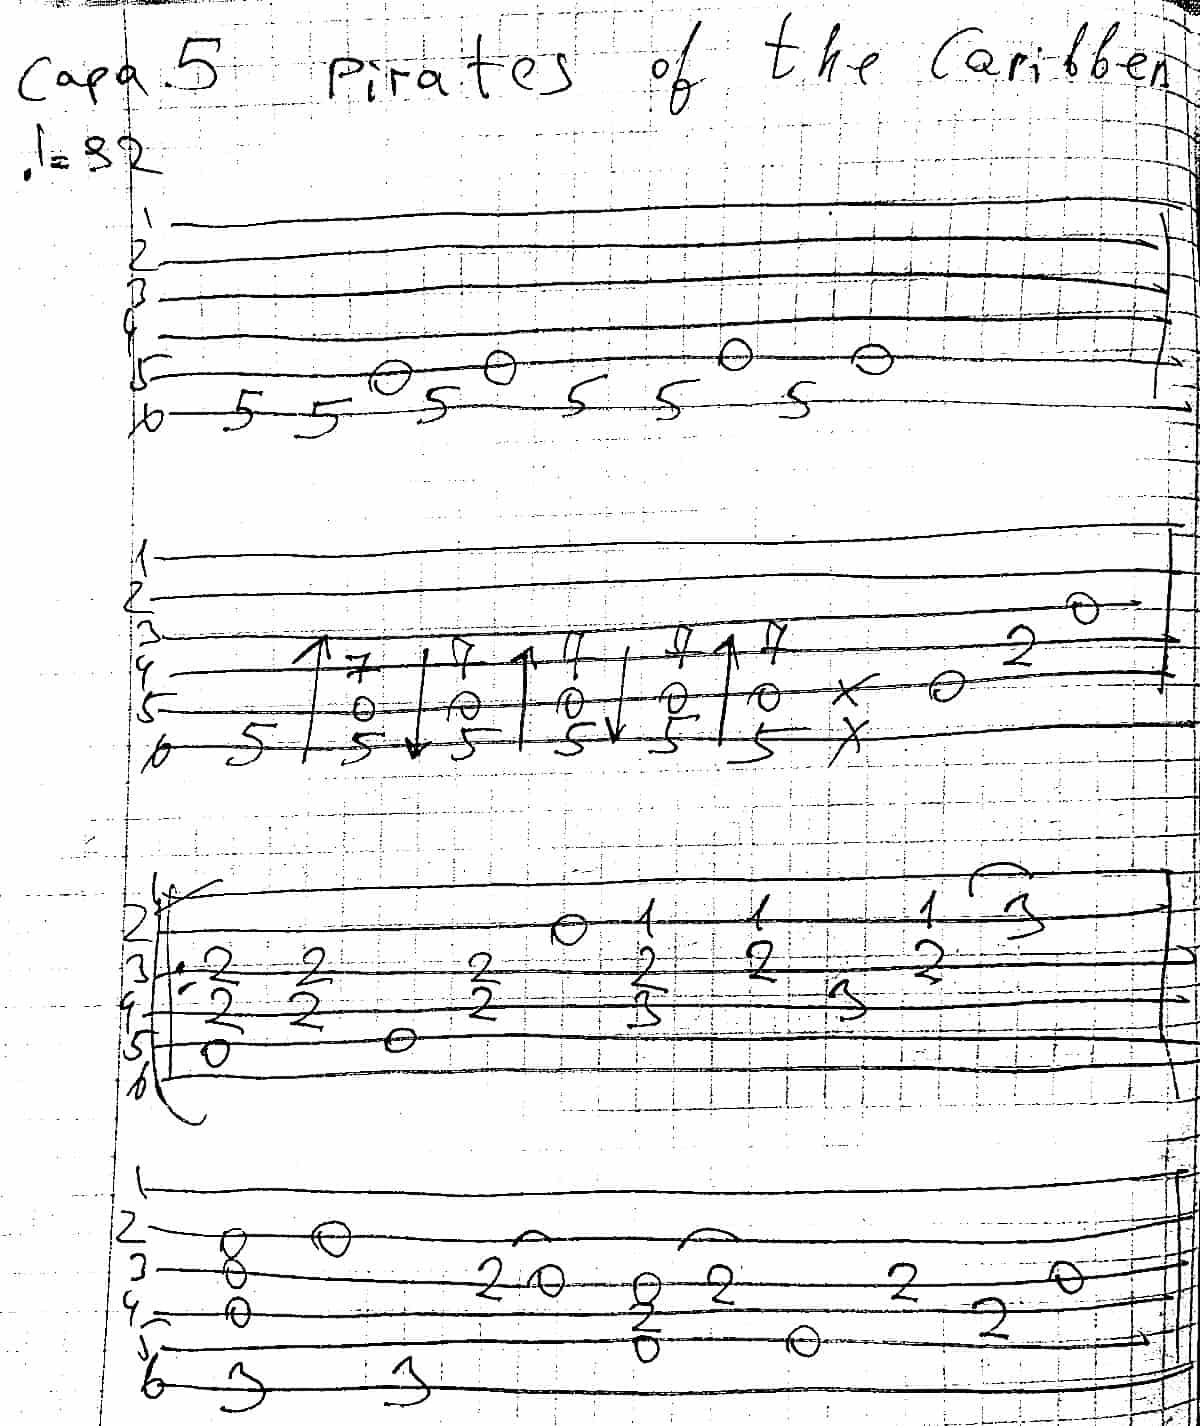 Capa.5 Pirates of the Caribben
♩=92
1
2
3
4
5 0 0 0 0
6 5 5 5 5 5 5
1
2
3 0
4 7 7 7 7 7 2
5 0 0 0 0 0 x 0
6 5 5 5 5 5 5 x
1
2 0 1 1 1 3
3 2 2 2 2 2 2
4 2 2 2 3 3
5 0 0
6
1
2 0 0
3 0 2 0 0 2 2 0
4 0 2 2
5 0 0
6 3 3